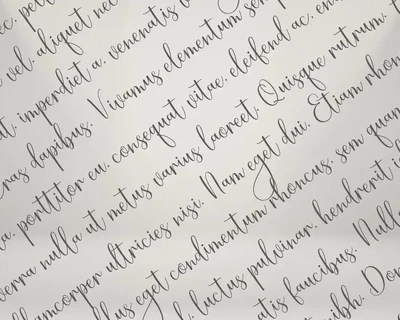 vel, aliquet nec
imperdiet a, venenatis v
ras dapibus. Vivamus elementum sem
a, porttitor eu, consequat vitae, eleifend ac,
verra nulla ut metus varius laoreet. Quisque rutrum.
llamcorper ultricies nisi. Nam eget dui. Etiam rhon
llus eget condimentum rhoncus, sem quam
luctus pulvinar, hendrerit
atis faucibus. Nulla
nibh. Don